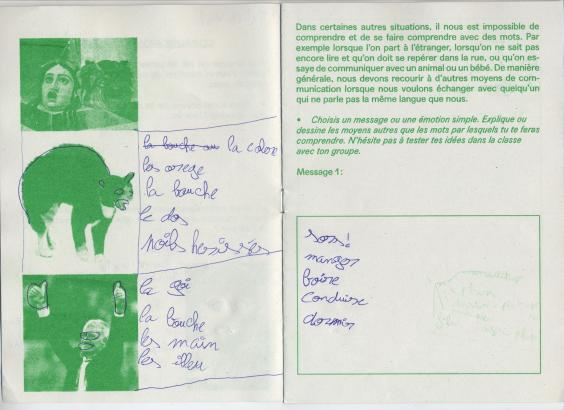 la bouche ou la colere
les orege
la bouche
le dos
poils herissés
la goi
la bouche
les main
les illeu
Dans certaines autres situations, il nous est impossible de
comprendre et de se faire comprendre avec des mots. Par
exemple lorsque l'on part à l'étranger, lorsqu'on ne sait pas
encore lire et qu'on doit se repérer dans la rue, ou qu'on es-
saye de communiquer avec un animal ou un bébé. De manière
générale, nous devons recourir à d'autres moyens de com-
munication lorsque nous voulons échanger avec quelqu'un
qui ne parle pas la même langue que nous.
• Choisis un message ou une émotion simple. Explique ou
dessine les moyens autres que les mots par lesquels tu te feras
comprendre. N'hésite pas à tester tes idées dans la classe
avec ton groupe.
Message 1:
manger
boire
Conduire
dormir